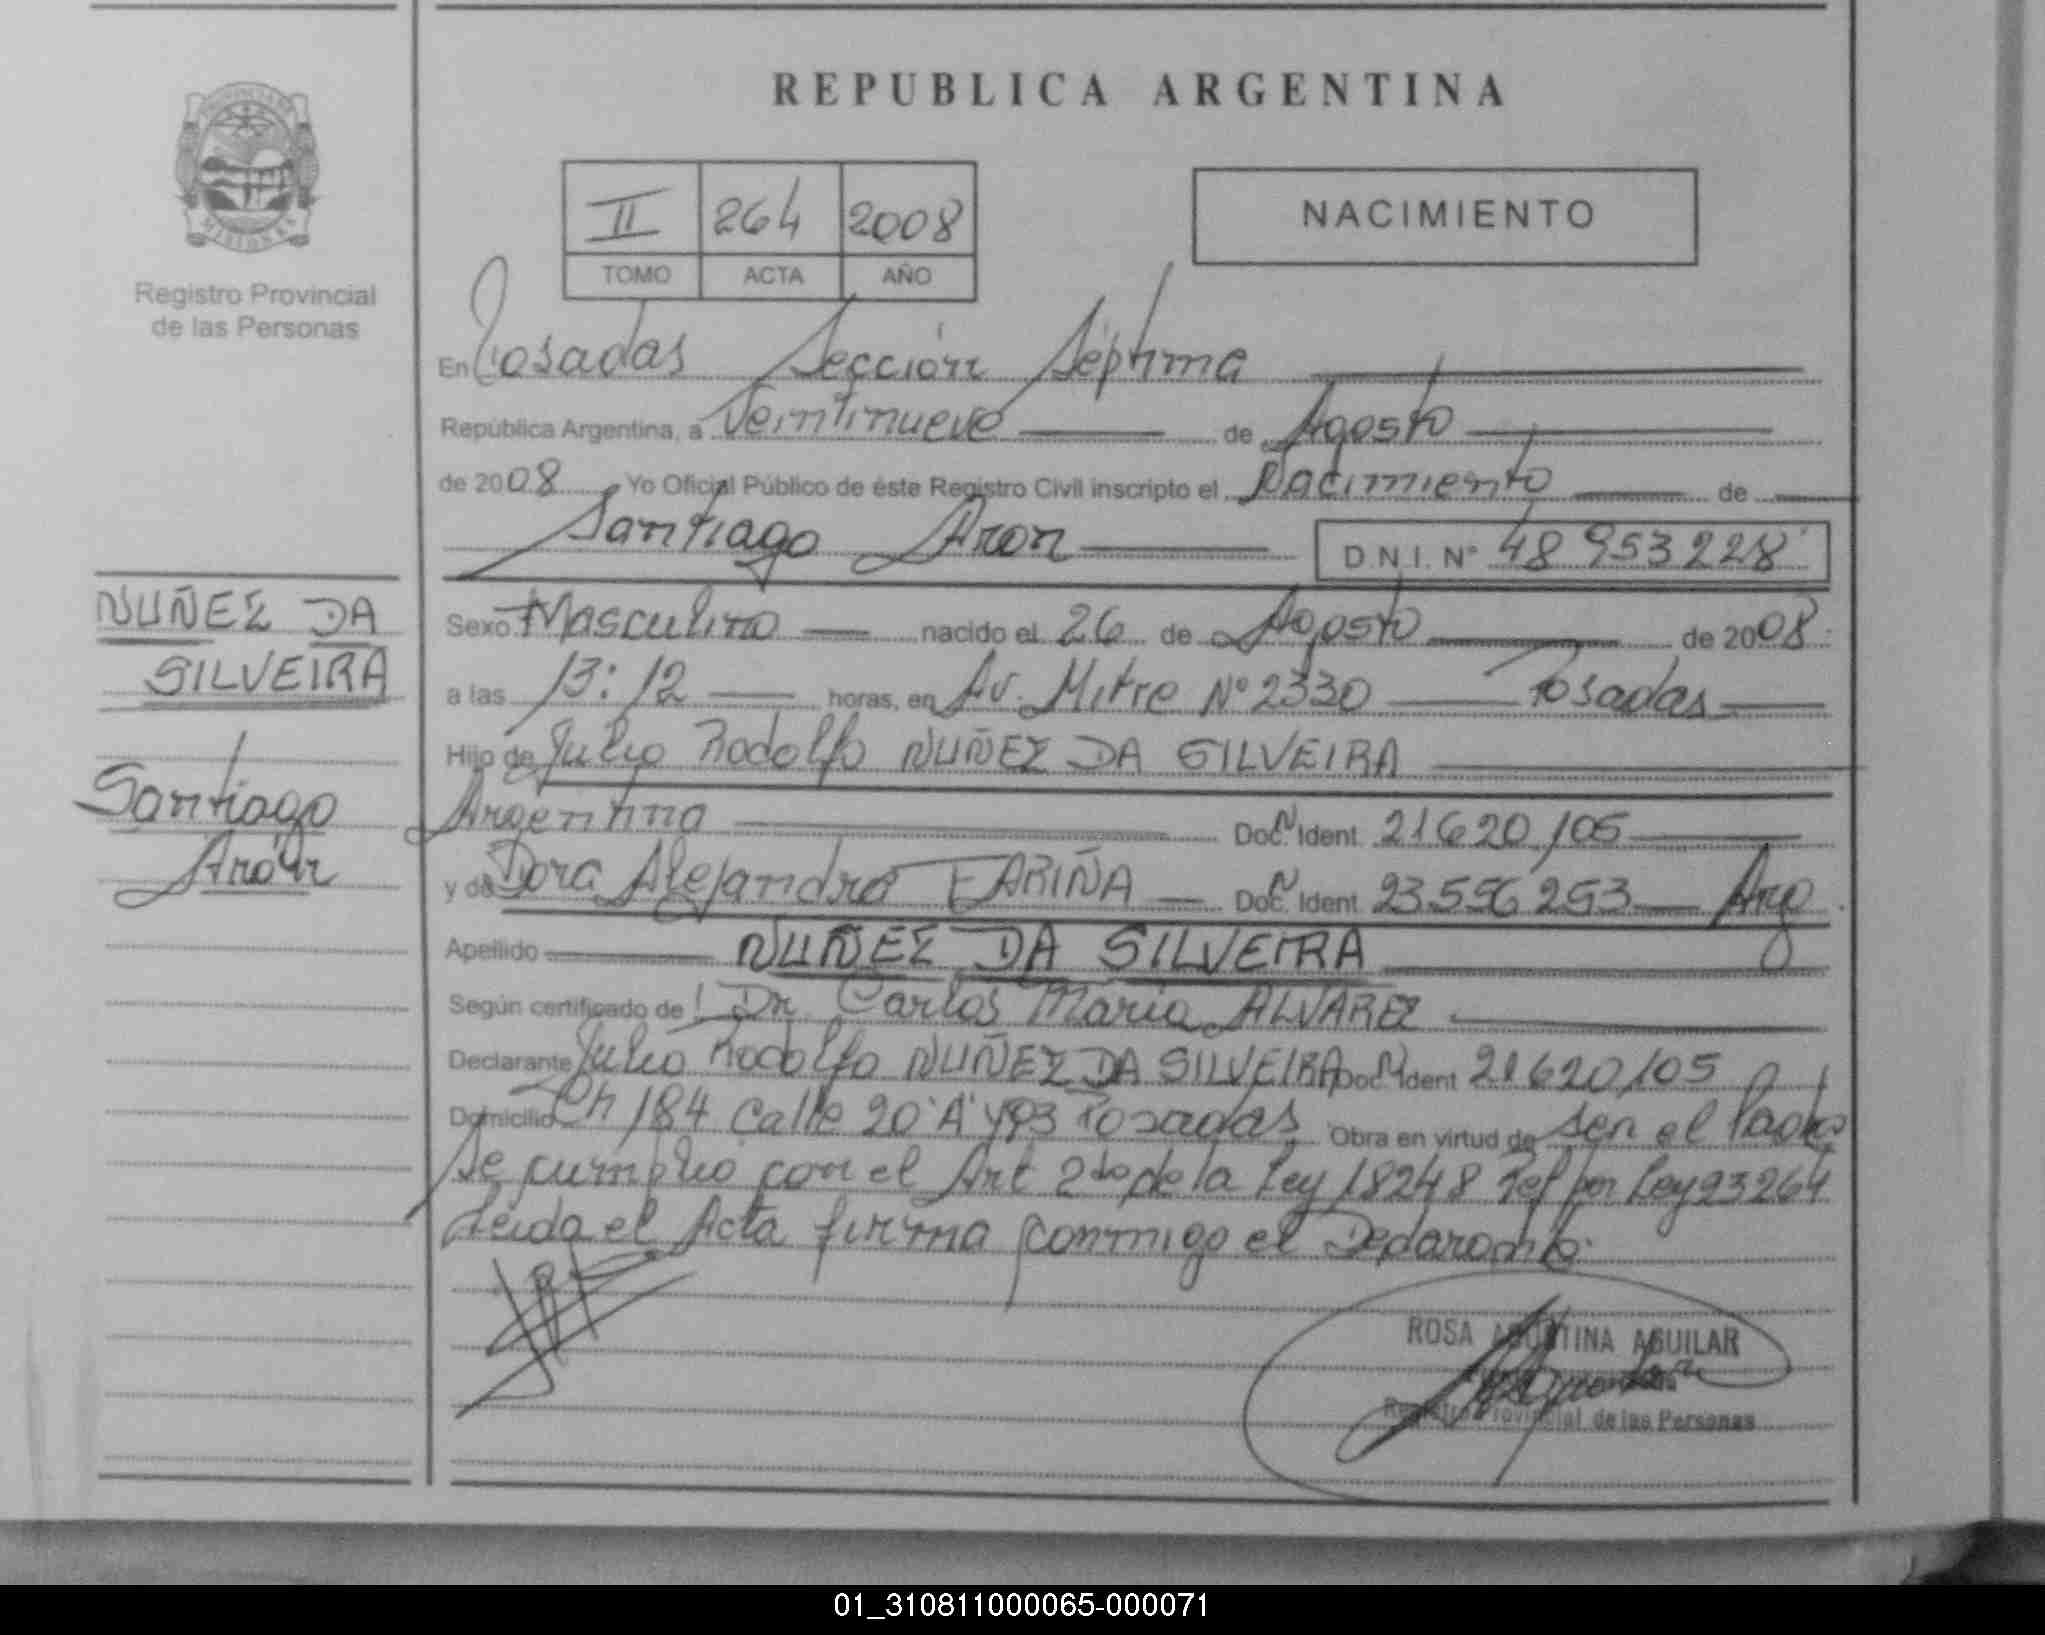 REPUBLICA ARGENTINA
PROVINCIA DE
MISIONES
Registro Provincial
de las Personas
II 264 2008
TOMO ACTA AÑO
NACIMIENTO
En Posadas Sección Séptima
República Argentina, a Veintinueve de Agosto
de 2008 Yo Oficial Público de éste Registro Civil inscripto el Nacimiento de
Santiago Aron D.N.I. Nº 48 953228
NUÑEZ DA
SILVEIRA
Santiago
Arón
Sexo Masculino nacido el 26 de Agosto de 2008
a las 13:12 horas, en Av. Mitre Nº 2330 Posadas
Hijo de Julio Rodolfo NUÑEZ DA SILVEIRA
Argentina Doc. N Ident. 21620105
y de Dora Alejandra FARIÑA Doc. N Ident. 23556253 Arg
Apellido NUÑEZ DA SILVEIRA
Según certificado de Dr. Carlos María ALVAREZ
Declarante Julio Rodolfo NUÑEZ DA SILVEIRA Doc. N Ident 21620105
Domicilio Ch 184 Calle 20 "A" y 93 Posadas Obra en virtud de ser el Padre
Se cumplio con el Art 2do de la Ley 18248 Ref por Ley 23264
Leida el Acta firma conmigo el Declarante.
ROSA AGUSTINA AGUILAR
Registro Provincial de las Personas
01_310811000065-000071